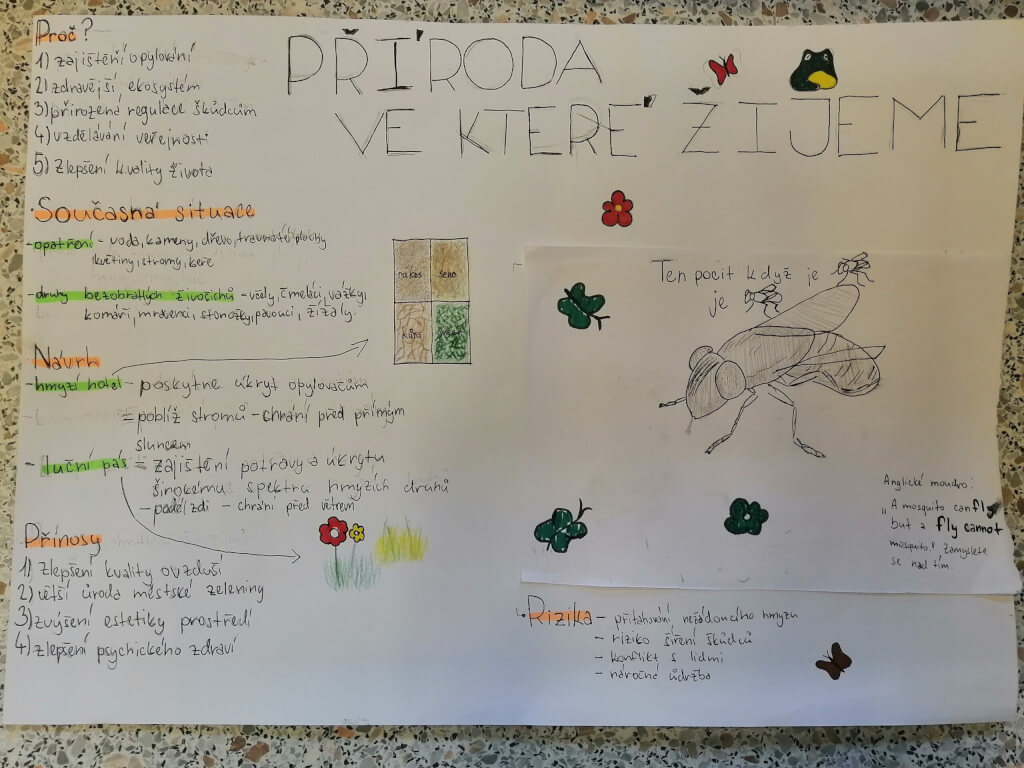 PŘÍRODA
VE KTERÉ ŽIJEME
Proč?
1) zajištění opylování
2) zdravější ekosystém
3) přirozená regulace škůdcům
4) vzdělávání veřejnosti
5) zlepšení kvality života
Současná situace
- opatření - voda, kameny, dřevo, travnaté plochy
květiny, stromy, keře
- druhy bezobratlých živočichů - včely, čmeláci, vážky,
komáři, mravenci, stonožky, pavouci, žížaly.
rákos
seno
kůra
Návrh
- hmyzí hotel - poskytne úkryt opylovačům
= poblíž stromů - chrání před přímým
sluncem
- luční pás = zajištění potravy a úkrytu
širokému spektru hmyzích druhů
- podél zdi - chrání před větrem
Přínosy
1) zlepšení kvality ovzduší
2) větší úroda městské zeleniny
3) zvýšení estetiky prostředí
4) zlepšení psychického zdraví
Ten pocit když je
je
Anglické moudro:
„A mosquito can fly
but a fly cannot
mosquito." Zamyslete
se nad tím.
Rizika - přitahování nežádoucího hmyzu
- riziko šíření škůdců
- konflikt s lidmi
- náročná údržba